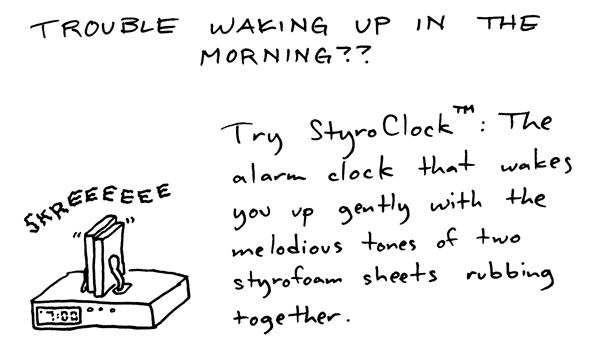 TROUBLE WAKING UP IN THE
MORNING??
Try StyroClock™: The
alarm clock that wakes
you up gently with the
melodious tones of two
styrofoam sheets rubbing
together.
SKREEEEEEE
7:00